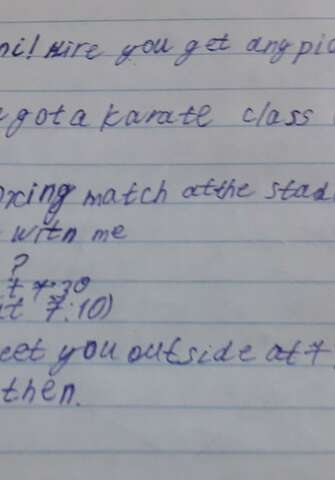 ni! Hire you get any pic
got a karate class
oxing match at the stad
with me
?
7 7:30
at 7:10)
eet you outside at 7
then.